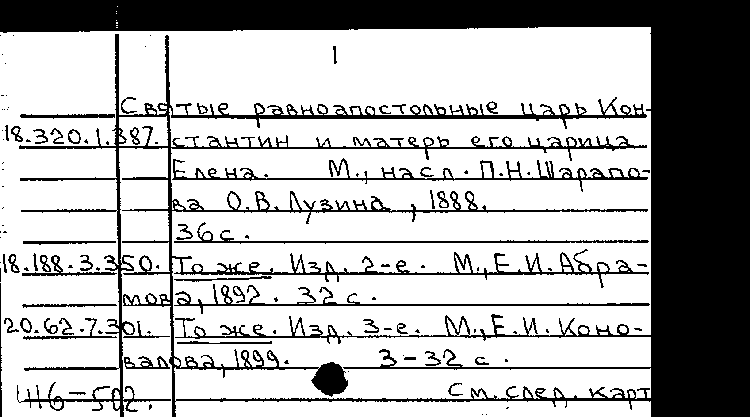 1
Святые равноапостольные царь Кон-
18.320.1.387. стантин и матерь его царица
Елена. М., насл. П.Н.Шарапо-
ва О.В.Лузина, 1888.
36 с.
18.188.3.350. То же. Изд. 2-е. М., Е.И.Абра-
мова, 1892. 32 с.
20.62.7.301. То же. Изд. 3-е. М., Е.И.Коно-
валова, 1899. 3-32 с.
См. след. карт